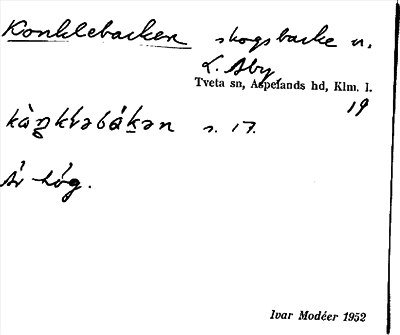 Konklebacken skogsbacke n.
L. Åby,
Tveta sn, Aspelands hd, Klm. l.
19
kàŋkləbákən s. 17.
Är hög.
Ivar Modéer 1952